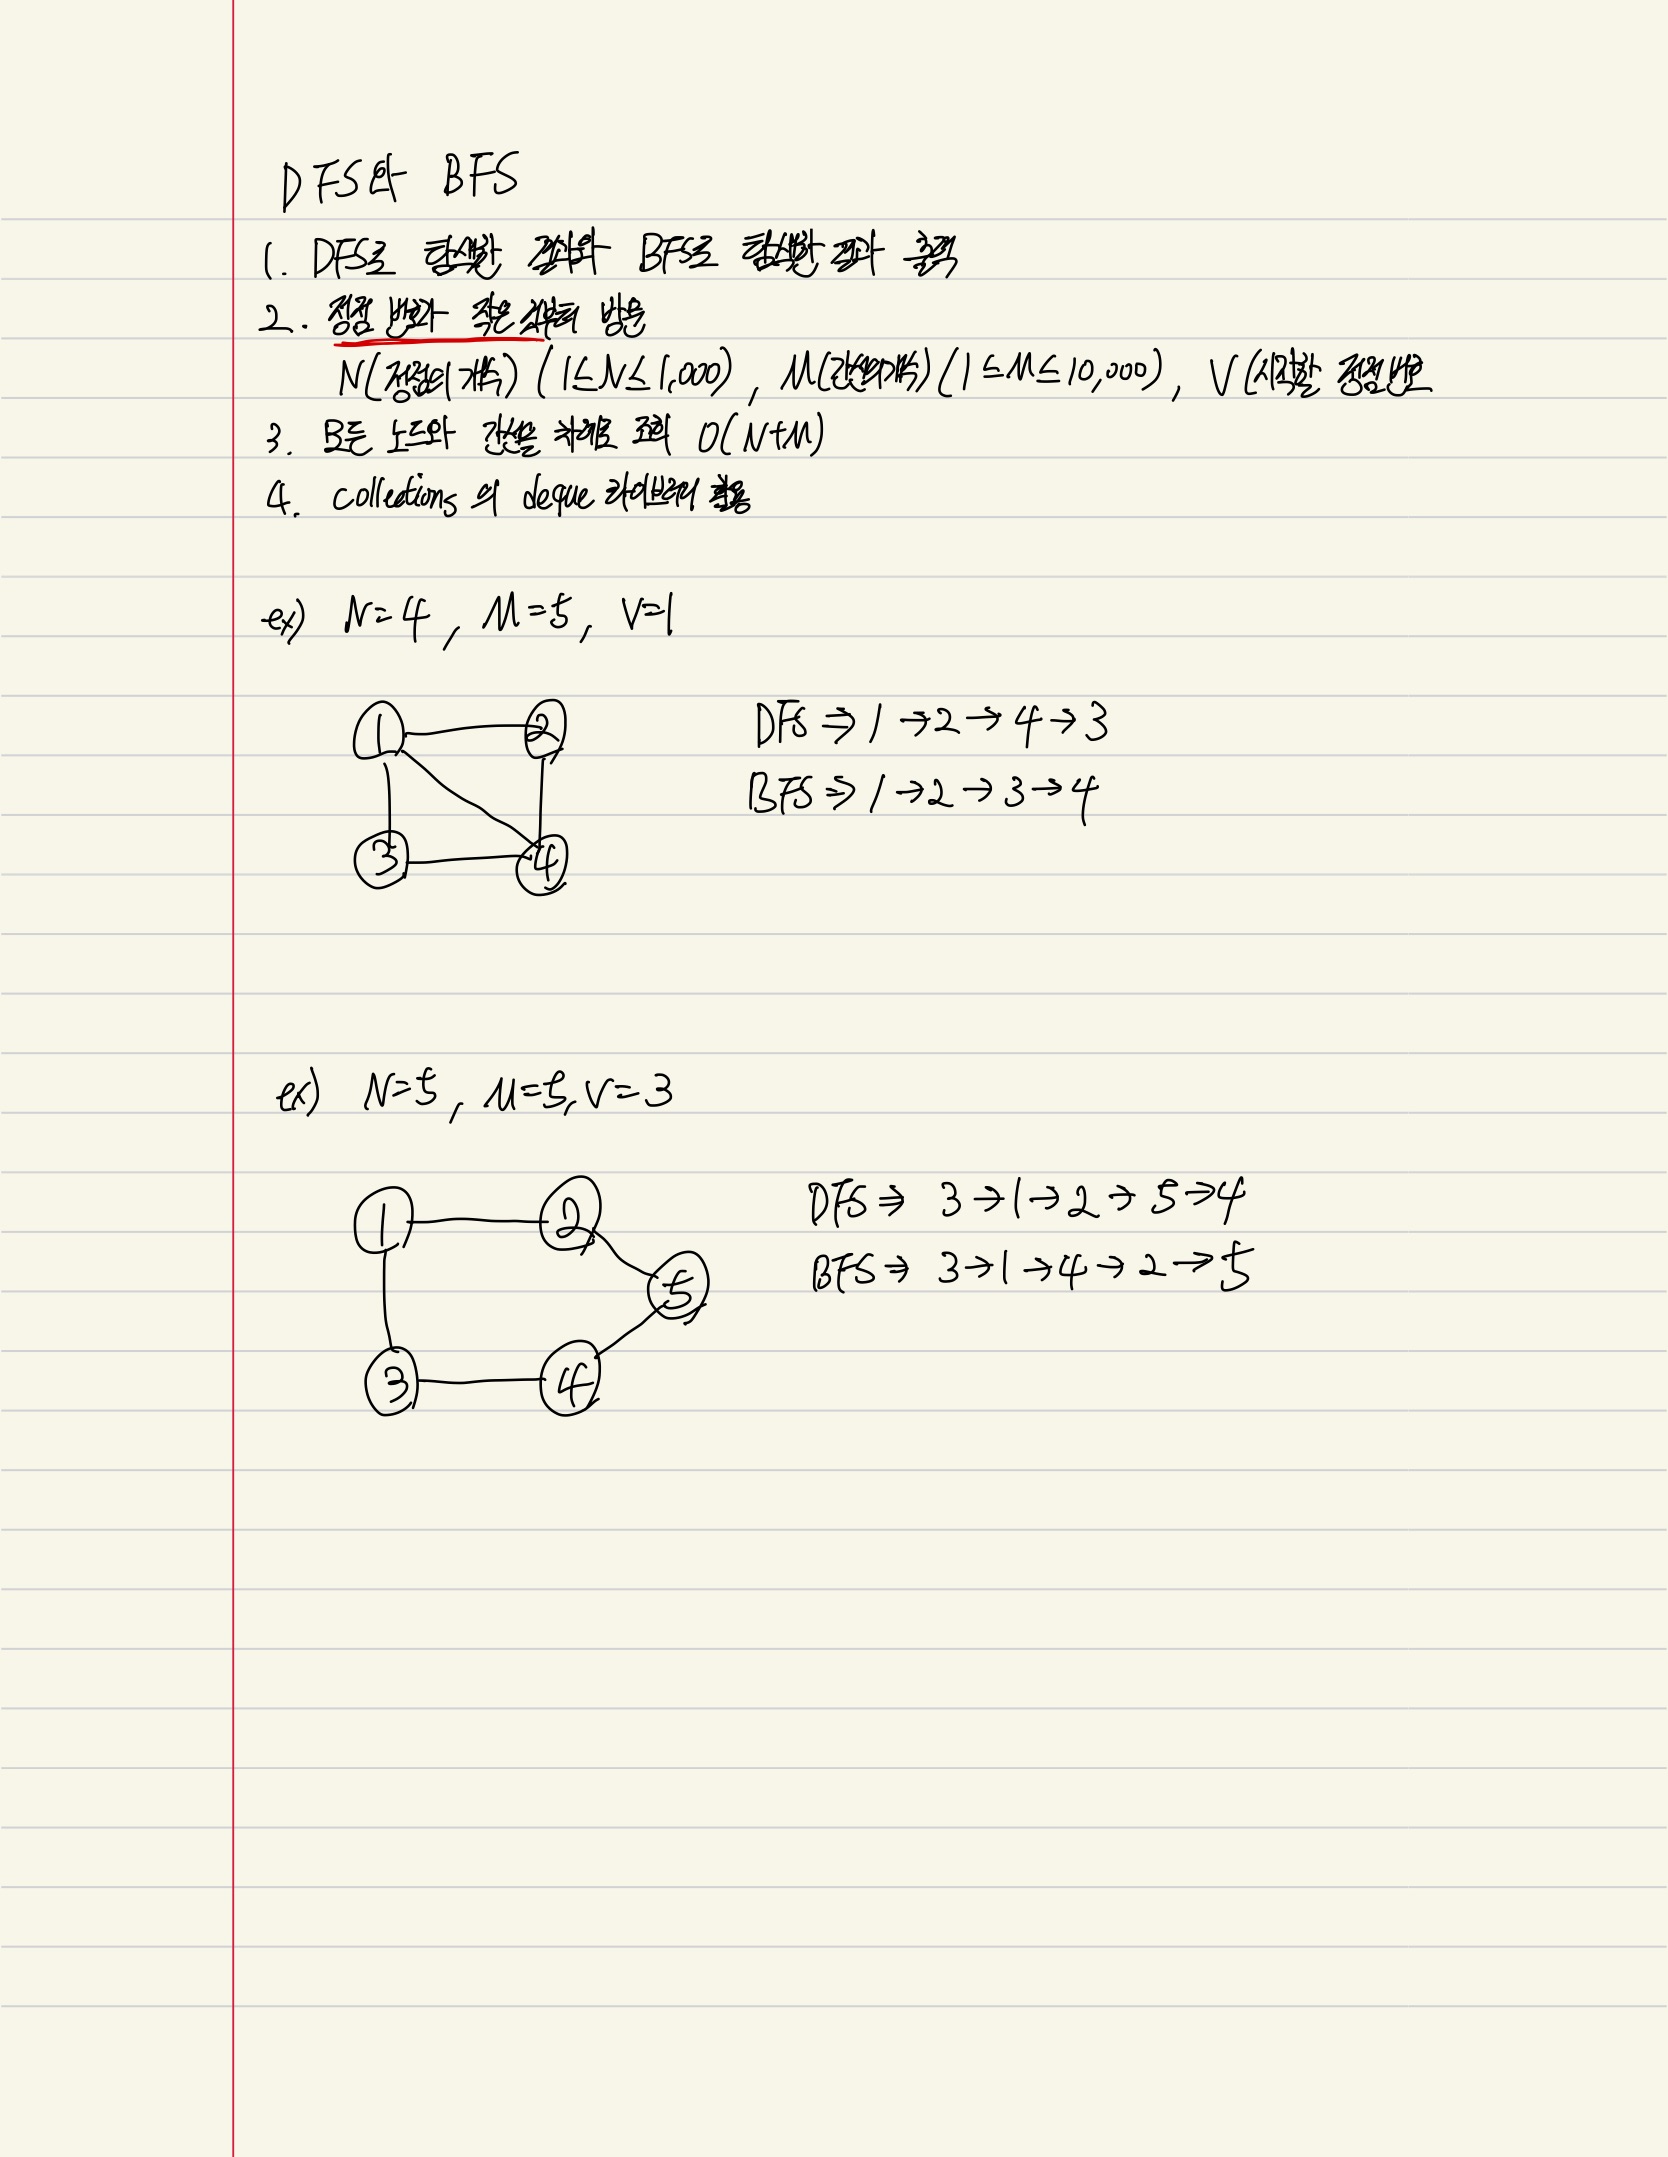 DFS와 BFS
1. DFS로 탐색한 결과와 BFS로 탐색한 결과 출력
2. 정점 번호가 작은 것부터 방문
N(정점의 개수) (1≤N≤1,000), M(간선의 개수) (1≤M≤10,000), V(시작할 정점번호
3. 모든 노드와 간선을 차례로 조회 O(N+M)
4. collections 의 deque 라이브러리 활용
ex) N=4, M=5, V=1
1 2
3 4
DFS ⇒ 1 → 2 → 4 → 3
BFS ⇒ 1 → 2 → 3 → 4
ex) N=5, M=5, V=3
1 2
5
3 4
DFS ⇒ 3 → 1 → 2 → 5 → 4
BFS ⇒ 3 → 1 → 4 → 2 → 5